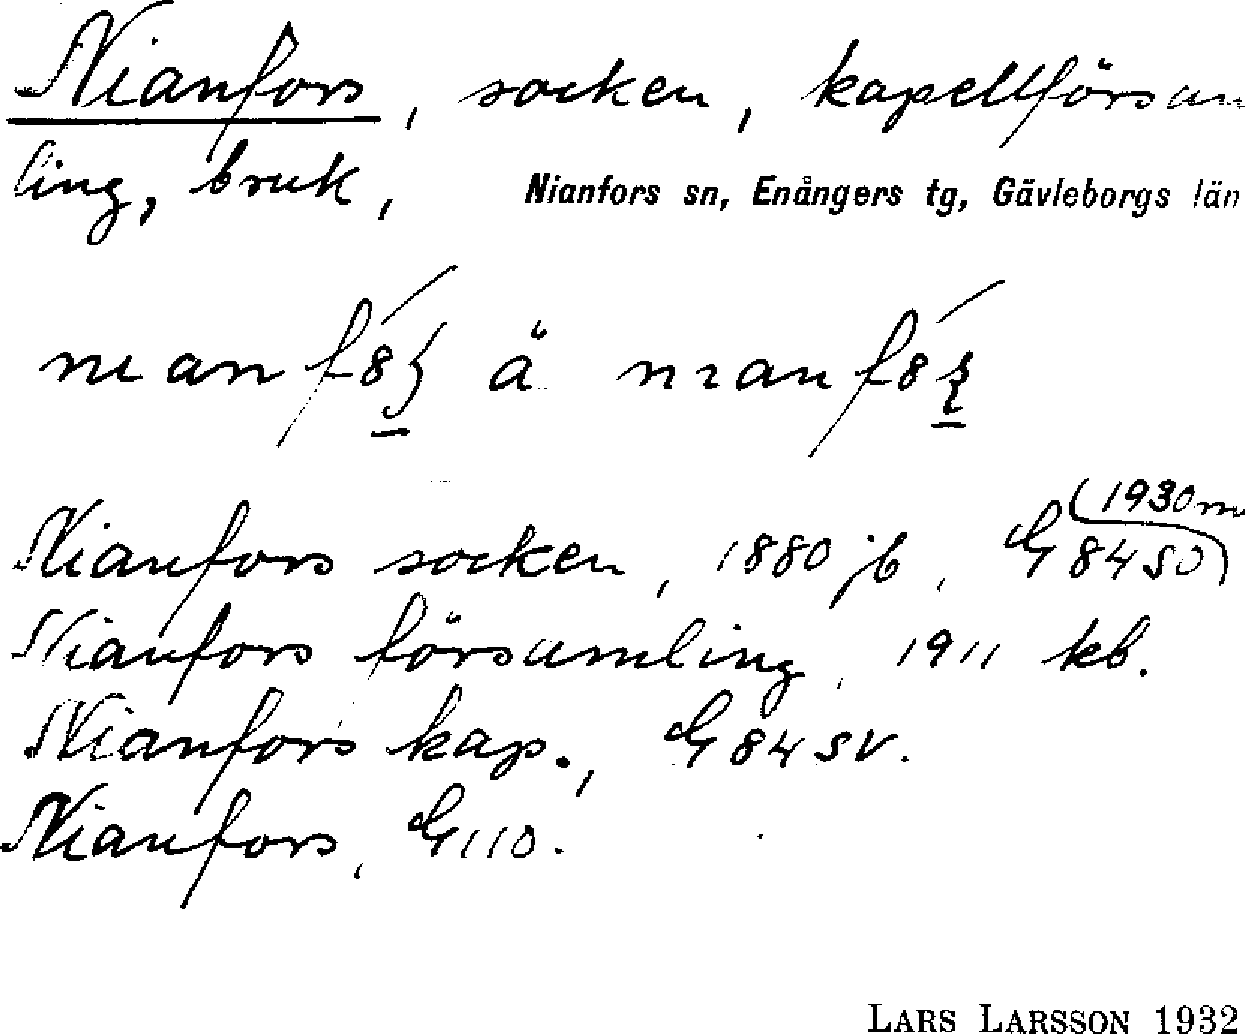 Nianfors, socken, kapellförsam
ling, bruk, Nianfors sn, Enångers tg, Gävleborgs län
å
(1930 m
Nianfors socken, 1880 jb, G84SO)
Nianfors församling, 1911 kb.
Nianfors kap., G84SV.
Nianfors, G110.
LARS LARSSON 1932